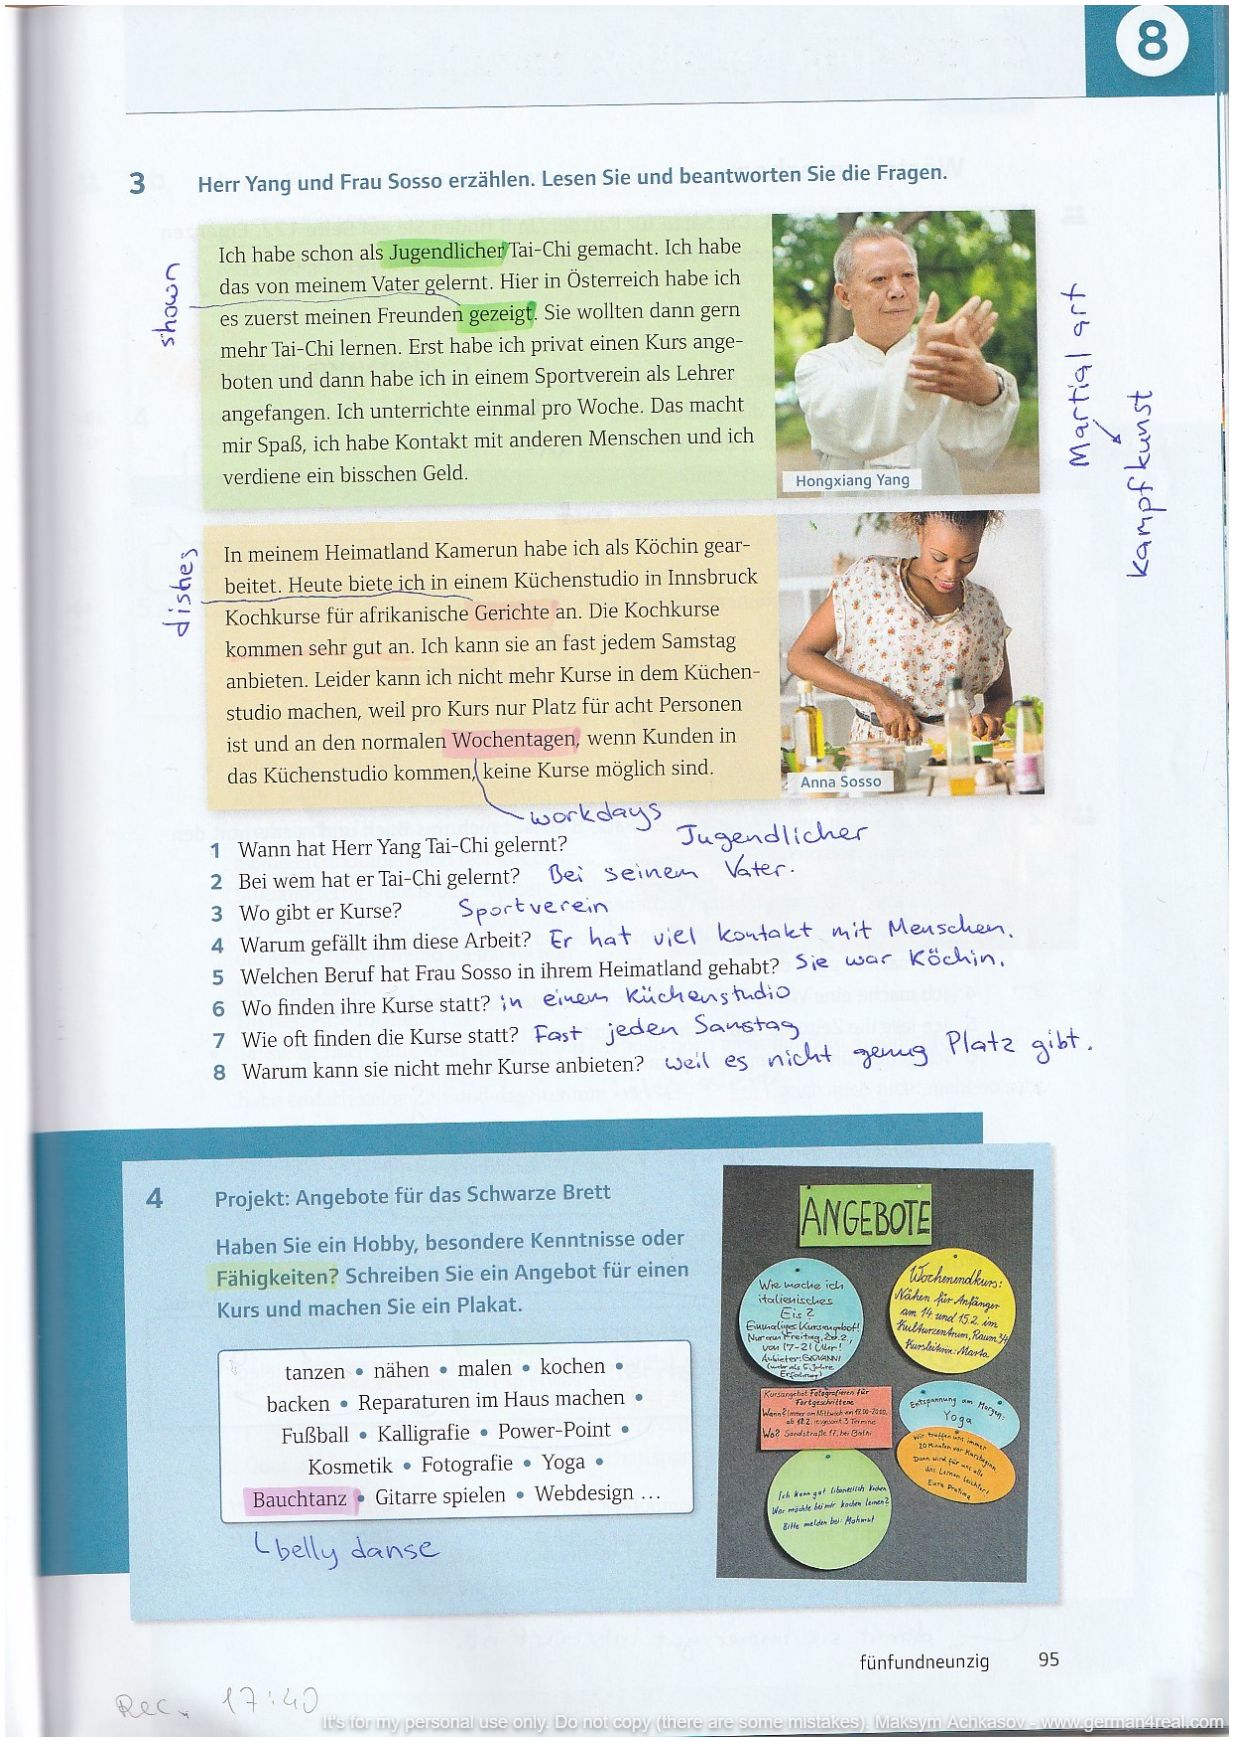 8
3 Herr Yang und Frau Sosso erzählen. Lesen Sie und beantworten Sie die Fragen.
Ich habe schon als Jugendlicher Tai-Chi gemacht. Ich habe
das von meinem Vater gelernt. Hier in Österreich habe ich
es zuerst meinen Freunden gezeigt. Sie wollten dann gern
mehr Tai-Chi lernen. Erst habe ich privat einen Kurs ange-
boten und dann habe ich in einem Sportverein als Lehrer
angefangen. Ich unterrichte einmal pro Woche. Das macht
mir Spaß, ich habe Kontakt mit anderen Menschen und ich
verdiene ein bisschen Geld.
shown
Hongxiang Yang
Martial art
Kampfkunst
In meinem Heimatland Kamerun habe ich als Köchin gear-
beitet. Heute biete ich in einem Küchenstudio in Innsbruck
Kochkurse für afrikanische Gerichte an. Die Kochkurse
kommen sehr gut an. Ich kann sie an fast jedem Samstag
anbieten. Leider kann ich nicht mehr Kurse in dem Küchen-
studio machen, weil pro Kurs nur Platz für acht Personen
ist und an den normalen Wochentagen, wenn Kunden in
das Küchenstudio kommen, keine Kurse möglich sind.
dishes
Anna Sosso
workdays
1 Wann hat Herr Yang Tai-Chi gelernt? Jugendlicher
2 Bei wem hat er Tai-Chi gelernt? Bei seinem Vater.
3 Wo gibt er Kurse? Sportverein
4 Warum gefällt ihm diese Arbeit? Er hat viel kontakt mit Menschen.
5 Welchen Beruf hat Frau Sosso in ihrem Heimatland gehabt? Sie war Köchin.
6 Wo finden ihre Kurse statt? in einem Küchenstudio
7 Wie oft finden die Kurse statt? Fast jeden Samstag
8 Warum kann sie nicht mehr Kurse anbieten? weil es nicht genug Platz gibt.
4 Projekt: Angebote für das Schwarze Brett
Haben Sie ein Hobby, besondere Kenntnisse oder
Fähigkeiten? Schreiben Sie ein Angebot für einen
Kurs und machen Sie ein Plakat.
tanzen • nähen • malen • kochen •
backen • Reparaturen im Haus machen •
Fußball • Kalligrafie • Power-Point •
Kosmetik • Fotografie • Yoga •
Bauchtanz • Gitarre spielen • Webdesign ...
belly danse
ANGEBOTE
Wie mache ich
italienisches
Eis?
Einmaliges Kursangebot!
Nur am Freitag, 20.2.,
von 17-21 Uhr!
Anbieter: GIOVANNI
(mehr als 5 Jahre
Erfahrung)
Wochenendkurs:
Nähen für Anfänger
am 14. und 15.2. im
Kulturzentrum, Raum 34
Kursleiterin: Marta
Kursangebot Fotografieren für
Fortgeschrittene
Wann? immer am Mittwoch von
insgesamt 3 Termine
Wo? Sandstraße 17, bei
Entspannung am Morgen:
Yoga
Wir treffen uns immer
20 Minuten vor Kursbeginn
Dann wird für uns alle
das Lernen leichter!
Eure Pratima
Ich kann gut libanesisch kochen
Wer möchte bei mir kochen lernen?
Bitte melden bei: Mahmut
fünfundneunzig 95
Rec. 17:40
It's for my personal use only. Do not copy (there are some mistakes). Maksym Achkasov - www.german4real.com